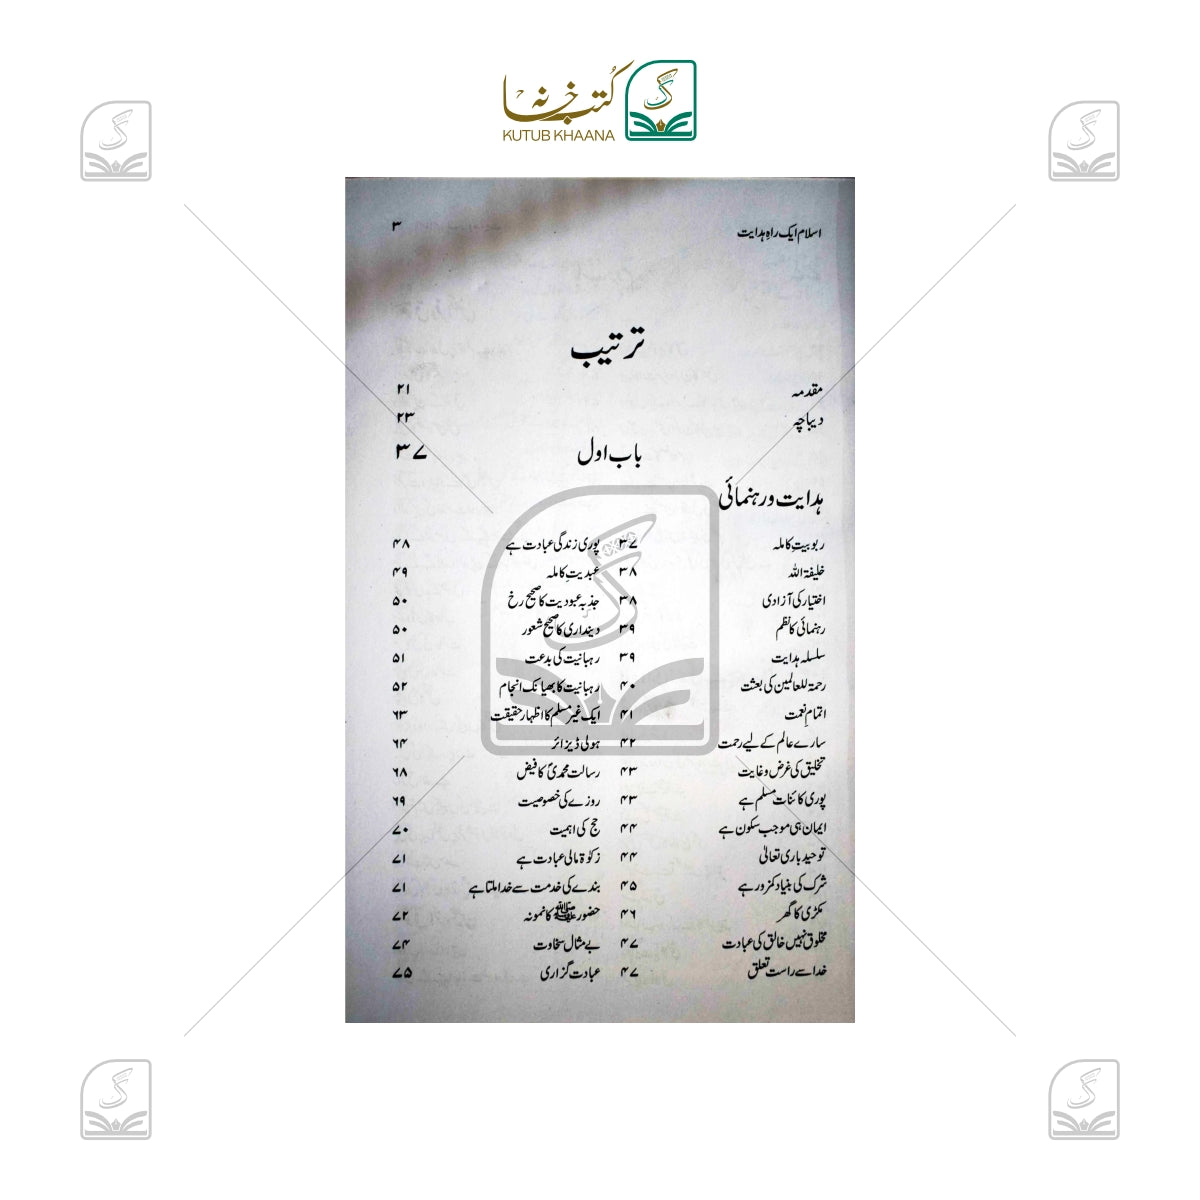 کتب خانہ
KUTUB KHAANA
اسلام ایک راہِ ہدایت ۳
ترتیب
مقدمہ ۲۱
دیباچہ ۲۳
باب اول ۳۷
ہدایت و رہنمائی
ربوبیتِ کاملہ ۳۷
خلیفۃ اللہ ۳۸
اختیار کی آزادی ۳۸
رہنمائی کا نظم ۳۹
سلسلہ ہدایت ۳۹
رحمۃ للعالمین کی بعثت ۴۰
اتمامِ نعمت ۴۱
سارے عالم کے لیے رحمت ۴۲
تخلیق کی غرض و غایت ۴۳
پوری کائنات مسلم ہے ۴۳
ایمان ہی موجب سکون ہے ۴۴
توحید باری تعالیٰ ۴۴
شرک کی بنیاد کمزور ہے ۴۵
مکڑی کا گھر ۴۶
مخلوق نہیں خالق کی عبادت ۴۷
خدا سے راست تعلق ۴۷
پوری زندگی عبادت ہے ۴۸
عبدیتِ کاملہ ۴۹
جذبہ عبودیت کا صحیح رخ ۵۰
دینداری کا صحیح شعور ۵۰
رہبانیت کی بدعت ۵۱
رہبانیت کا بھیانک انجام ۵۲
ایک غیر مسلم کا اظہار حقیقت ۶۳
ہولی ڈیزائر ۶۴
رسالت محمدیؐ کا فیض ۶۸
روزے کی خصوصیت ۶۹
حج کی اہمیت ۷۰
زکوٰۃ مالی عبادت ہے ۷۱
بندے کی خدمت سے خدا ملتا ہے ۷۱
حضور ﷺ کا نمونہ ۷۲
بے مثال سخاوت ۷۴
عبادت گزاری ۷۵